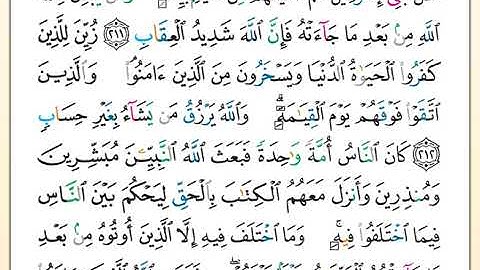 ٱللَّهِ مِنۢ بَعْدِ مَا جَآءَتْهُ فَإِنَّ ٱللَّهَ شَدِيدُ ٱلْعِقَابِ ٢١١ زُيِّنَ لِلَّذِينَ
كَفَرُوا۟ ٱلْحَيَوٰةُ ٱلدُّنْيَا وَيَسْخَرُونَ مِنَ ٱلَّذِينَ ءَامَنُوا۟ۘ وَٱلَّذِينَ
ٱتَّقَوْا۟ فَوْقَهُمْ يَوْمَ ٱلْقِيَـٰمَةِۗ وَٱللَّهُ يَرْزُقُ مَن يَشَآءُ بِغَيْرِ حِسَابٍ
٢١٢ كَانَ ٱلنَّاسُ أُمَّةً وَٰحِدَةً فَبَعَثَ ٱللَّهُ ٱلنَّبِيِّـۧنَ مُبَشِّرِينَ
وَمُنذِرِينَ وَأَنزَلَ مَعَهُمُ ٱلْكِتَـٰبَ بِٱلْحَقِّ لِيَحْكُمَ بَيْنَ ٱلنَّاسِ
فِيمَا ٱخْتَلَفُوا۟ فِيهِۚ وَمَا ٱخْتَلَفَ فِيهِ إِلَّا ٱلَّذِينَ أُوتُوهُ مِنۢ بَعْدِ